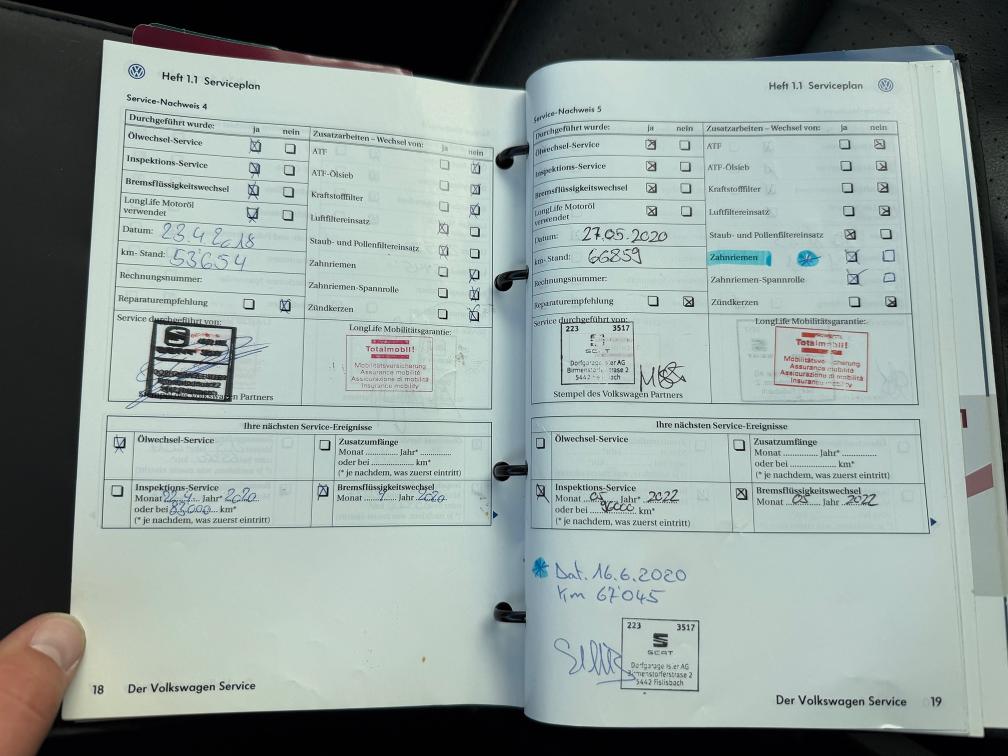 Heft 1.1 Serviceplan
Service-Nachweis 4
Durchgeführt wurde: ja nein
Ölwechsel-Service
Inspektions-Service
Bremsflüssigkeitswechsel
LongLife Motoröl
verwendet
Datum: 23.4.2018
km- Stand: 53654
Rechnungsnummer:
Reparaturempfehlung
Zusatzarbeiten – Wechsel von: ja nein
ATF
ATF-Ölsieb
Kraftstofffilter
Luftfiltereinsatz
Staub- und Pollenfiltereinsatz
Zahnriemen
Zahnriemen-Spannrolle
Zündkerzen
Service durchgeführt von:
Stempel des Volkswagen Partners
LongLife Mobilitätsgarantie:
Totalmobil!
Mobilitätsversicherung
Assurance mobilité
Assicurazione di mobilità
Insurance mobility
Ihre nächsten Service-Ereignisse
Ölwechsel-Service
Zusatzumfänge
Monat .............. Jahr* ..............
oder bei .............. km*
(* je nachdem, was zuerst eintritt)
Inspektions-Service
Monat Jahr* 2020
oder bei 83000 km*
(* je nachdem, was zuerst eintritt)
Bremsflüssigkeitswechsel
Monat Jahr 2020
18 Der Volkswagen Service
Heft 1.1 Serviceplan
Service-Nachweis 5
Durchgeführt wurde: ja nein
Ölwechsel-Service
Inspektions-Service
Bremsflüssigkeitswechsel
LongLife Motoröl
verwendet
Datum: 27.05.2020
km- Stand: 66859
Rechnungsnummer:
Reparaturempfehlung
Zusatzarbeiten – Wechsel von: ja nein
ATF
ATF-Ölsieb
Kraftstofffilter
Luftfiltereinsatz
Staub- und Pollenfiltereinsatz
Zahnriemen
Zahnriemen-Spannrolle
Zündkerzen
Service durchgeführt von:
223 3517
SEAT
Birmenstorferstrasse 2
5442 Fislisbach
Stempel des Volkswagen Partners
LongLife Mobilitätsgarantie:
Totalmobil!
Mobilitätsversicherung
Assurance mobilité
Assicurazione di mobilità
Insurance mobility
Ihre nächsten Service-Ereignisse
Ölwechsel-Service
Zusatzumfänge
Monat .............. Jahr* ..............
oder bei .............. km*
(* je nachdem, was zuerst eintritt)
Inspektions-Service
Monat 05 Jahr* 2022
oder bei 96000 km*
(* je nachdem, was zuerst eintritt)
Bremsflüssigkeitswechsel
Monat 05 Jahr 2022
Dat. 16.6.2020
Km 67'045
223 3517
SEAT
Dorfgarage AG
Birmenstorferstrasse 2
5442 Fislisbach
Der Volkswagen Service 19